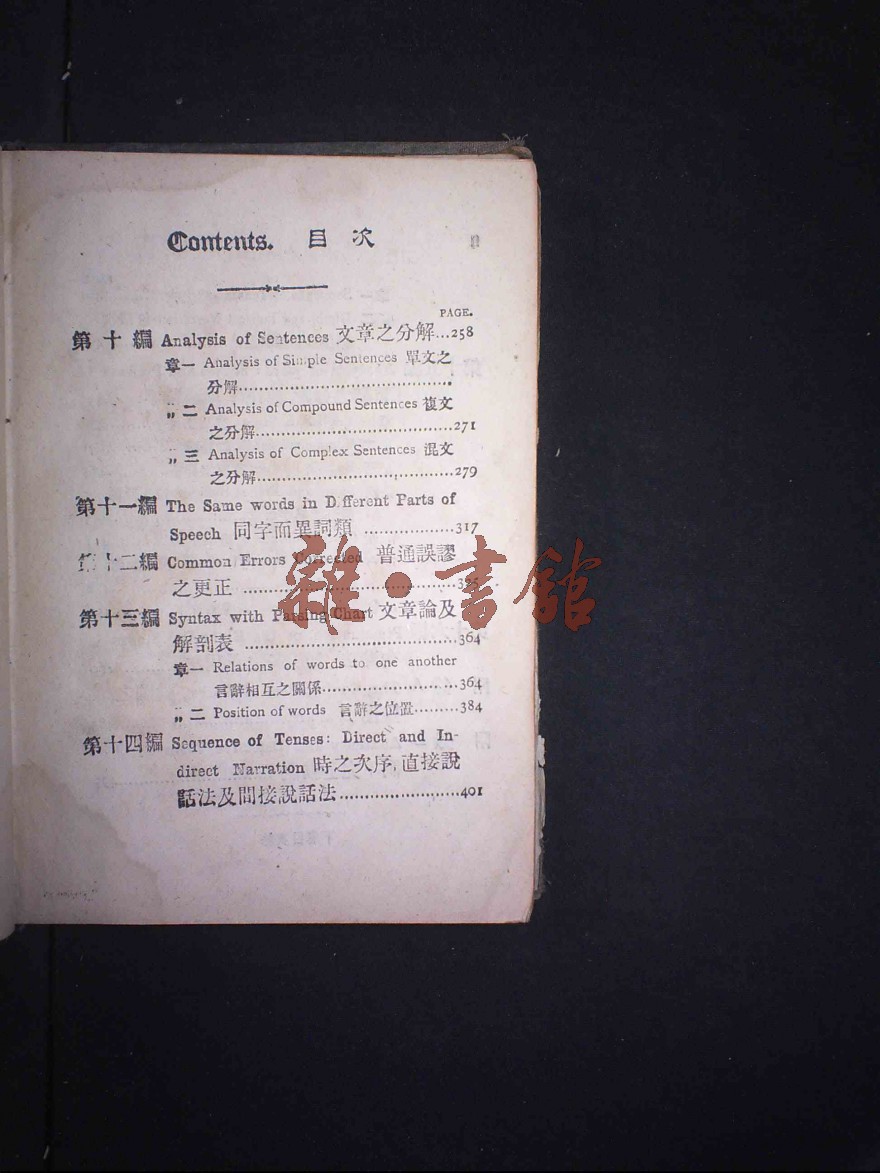 Contents. 目次
PAGE.
第十編 Analysis of Sentences 文章之分解...258
章一 Analysis of Simple Sentences 單文之
分解
„ 二 Analysis of Compound Sentences 複文
之分解...271
„ 三 Analysis of Complex Sentences 混文
之分解...279
第十一編 The Same words in Different Parts of
Speech 同字而異詞類...317
第十二編 Common Errors Corrected 普通誤謬
之更正
第十三編 Syntax with Parsing Chart 文章論及
解剖表...364
章一 Relations of words to one another
言辭相互之關係...364
„ 二 Position of words 言辭之位置...384
第十四編 Sequence of Tenses: Direct and In-
direct Narration 時之次序, 直接說
話法及間接說話法...401
雜·書館